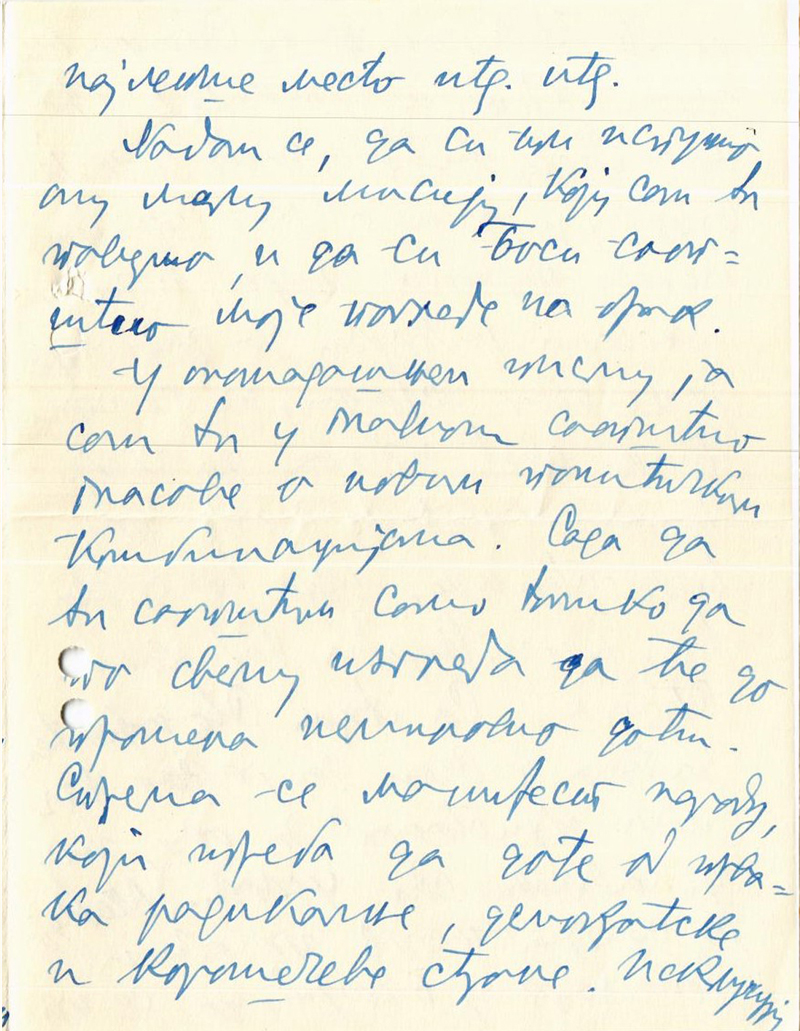 најлепше место итд. итд.
Надам се, да си ти испунио
ону малу мисију, коју сам ти
поверио, и да си Боси саоп=
штио моје погледе на брак.
У ономадашњем писму, ја
сам ти у главном саопштио
гласове о новим политичким
комбинацијама. Сада да
ти саопштим само толико да
по свему изгледа да ће до
промена неминовно доћи.
Спрема се манифест народу,
који треба да дође од прва=
ка радикалне, демократске
и Корошечеве стране. Искључују